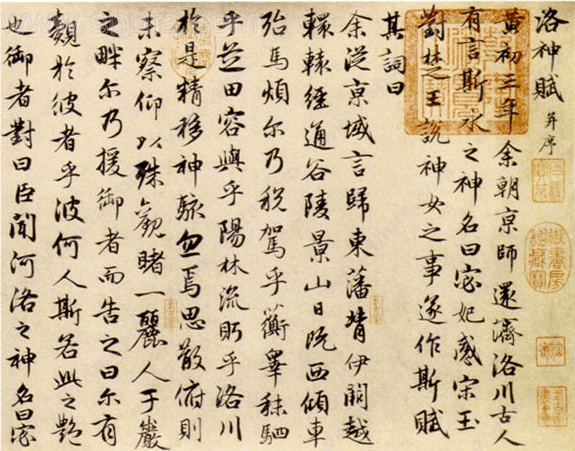 洛神賦 并序
黃初三年余朝京師還濟洛川古人
有言斯水之神名曰宓妃感宋玉
對楚王說神女之事遂作斯賦
其詞曰
余從京域言歸東藩背伊闕越
轘轅經通谷陵景山日既西傾車
殆馬煩尔乃稅駕乎蘅皋秣駟
乎芝田容與乎陽林流眄乎洛川
於是精移神駭忽焉思散俯則
未察仰以殊觀睹一麗人于巖
之畔尔乃援御者而告之曰尔有
覿於彼者乎彼何人斯若此之艷
也御者對曰臣聞河洛之神名曰宓